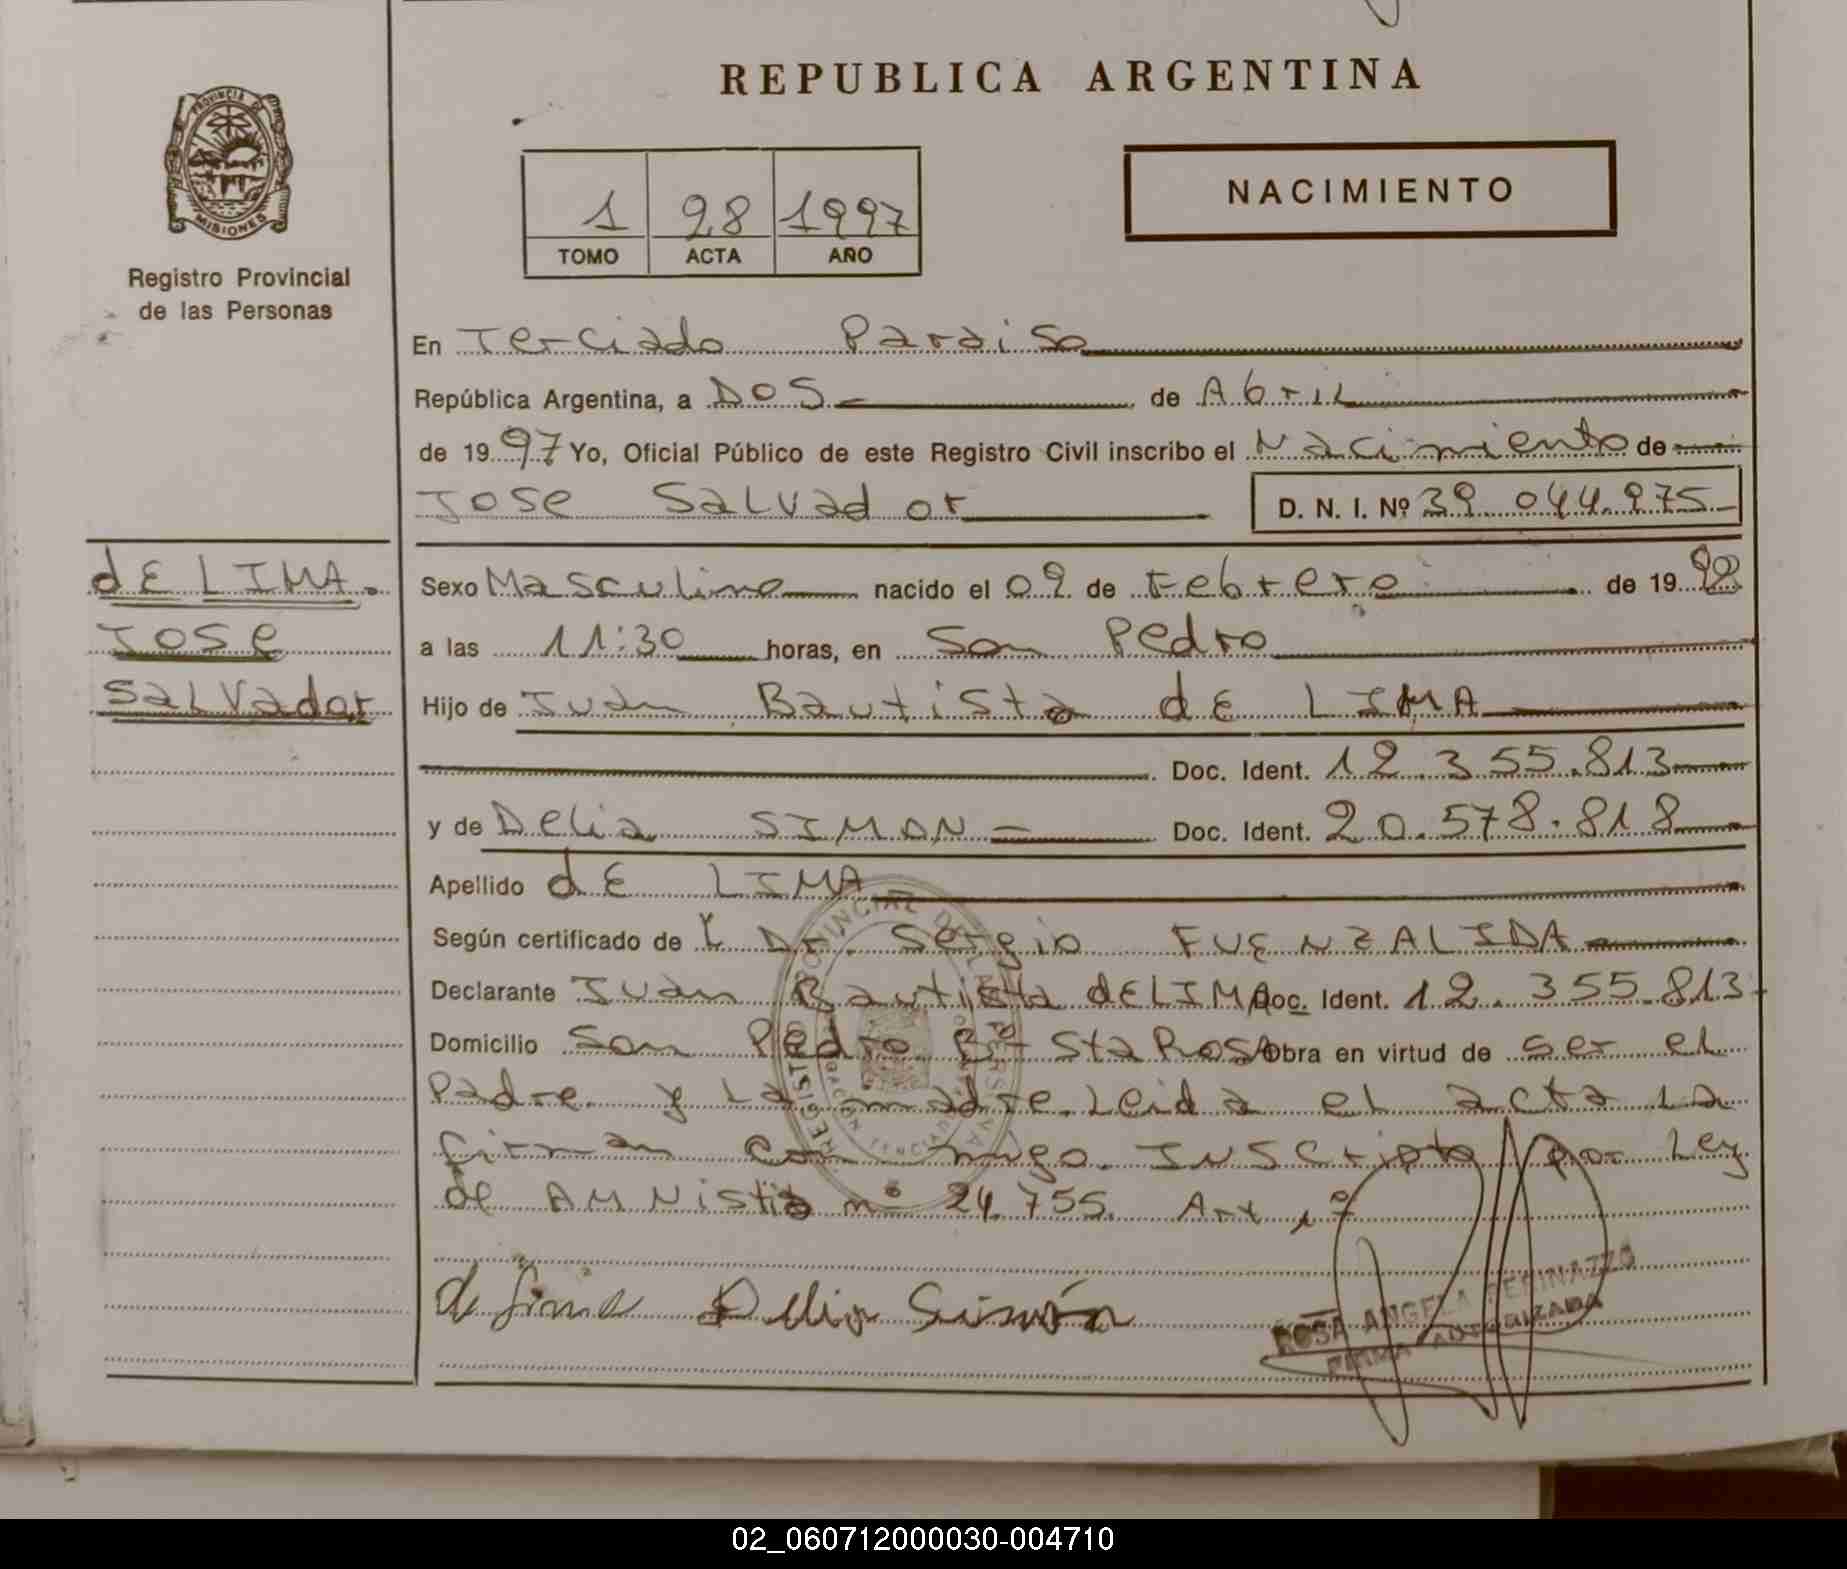 REPUBLICA ARGENTINA
PROVINCIA DE
MISIONES
Registro Provincial
de las Personas
1 28 1997
TOMO ACTA AÑO
NACIMIENTO
En Terciado Paraiso
República Argentina, a DOS de Abril
de 1997 Yo, Oficial Público de este Registro Civil inscribo el Nacimiento de
Jose Salvador D. N. I. Nº 39.044.975
dE LIMA.
Jose
Salvador
Sexo Masculino nacido el 09 de Febrero de 19
a las 11:30 horas, en San Pedro
Hijo de Juan Bautista dE LIMA
Doc. Ident. 12.355.813
y de Delia SIMON Doc. Ident. 20.578.818
Apellido dE LIMA
Según certificado de Dr. Sergio FUENZALIDA
Declarante Juan Bautista dELIMA Doc. Ident. 12.355.813
Domicilio San Pedro Bº Sta Rosa Obra en virtud de ser el
Padre y La madre. Leida el acta La
firman con migo. INSCripto por Ley
de AMNistia nº 24.755. Art
Delia Simón
ROSA ANGELA
FIRMA AUTORIZADA
02_060712000030-004710